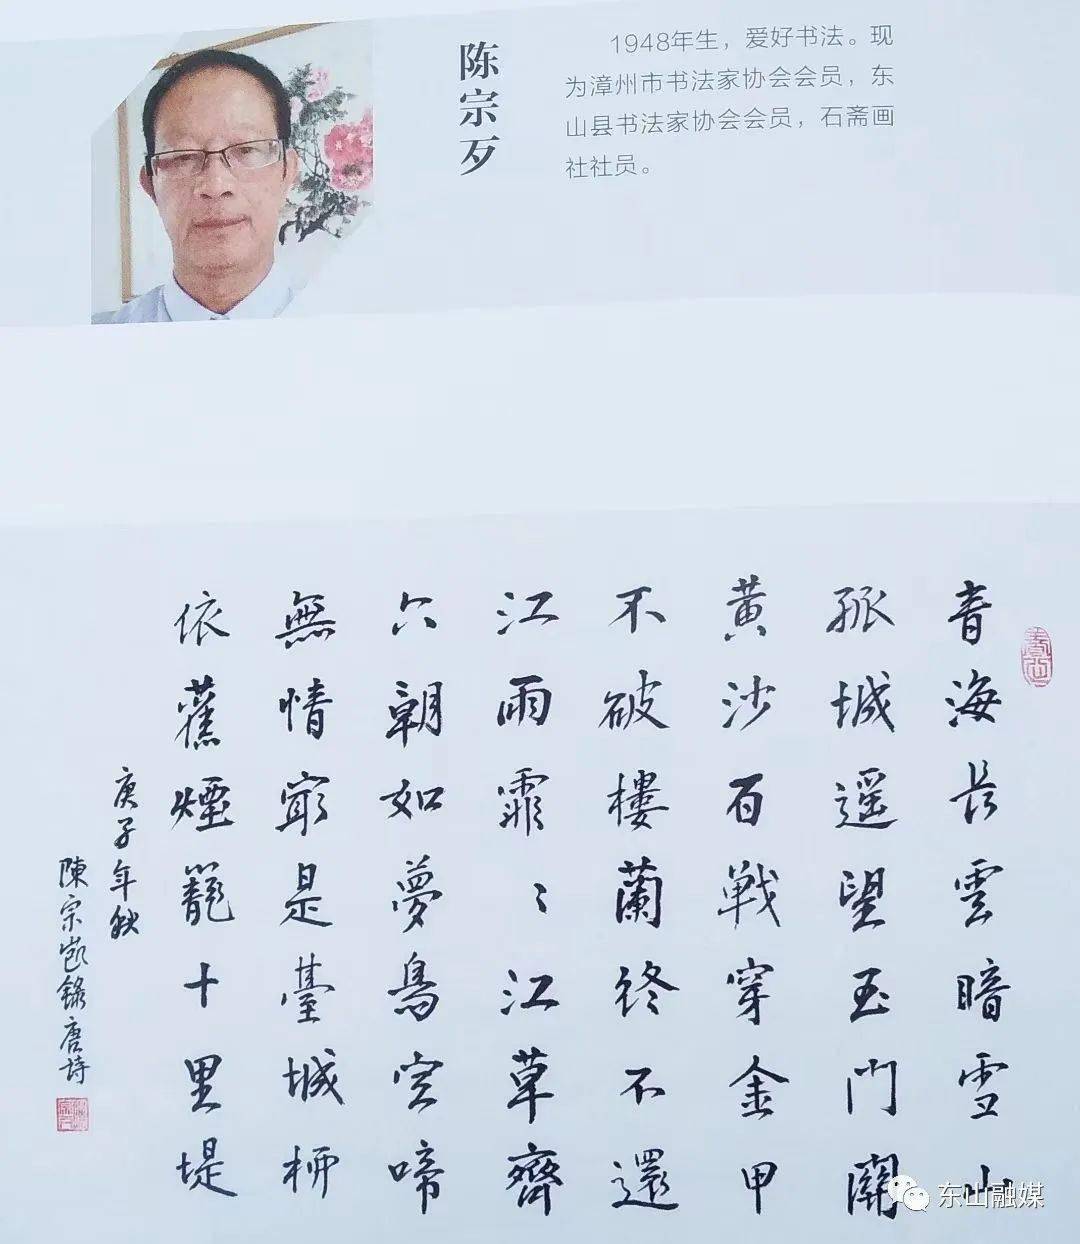 陈宗歹
1948年生，爱好书法。现
为漳州市书法家协会会员，东
山县书法家协会会员，石斋画
社社员。
青海長雲暗雪山
孤城遥望玉門關
黄沙百戰穿金甲
不破樓蘭終不還
江雨霏〻江草齊
六朝如夢鳥空啼
無情最是臺城柳
依舊煙籠十里堤
庚子年秋
陳宗錄唐詩
东山融媒